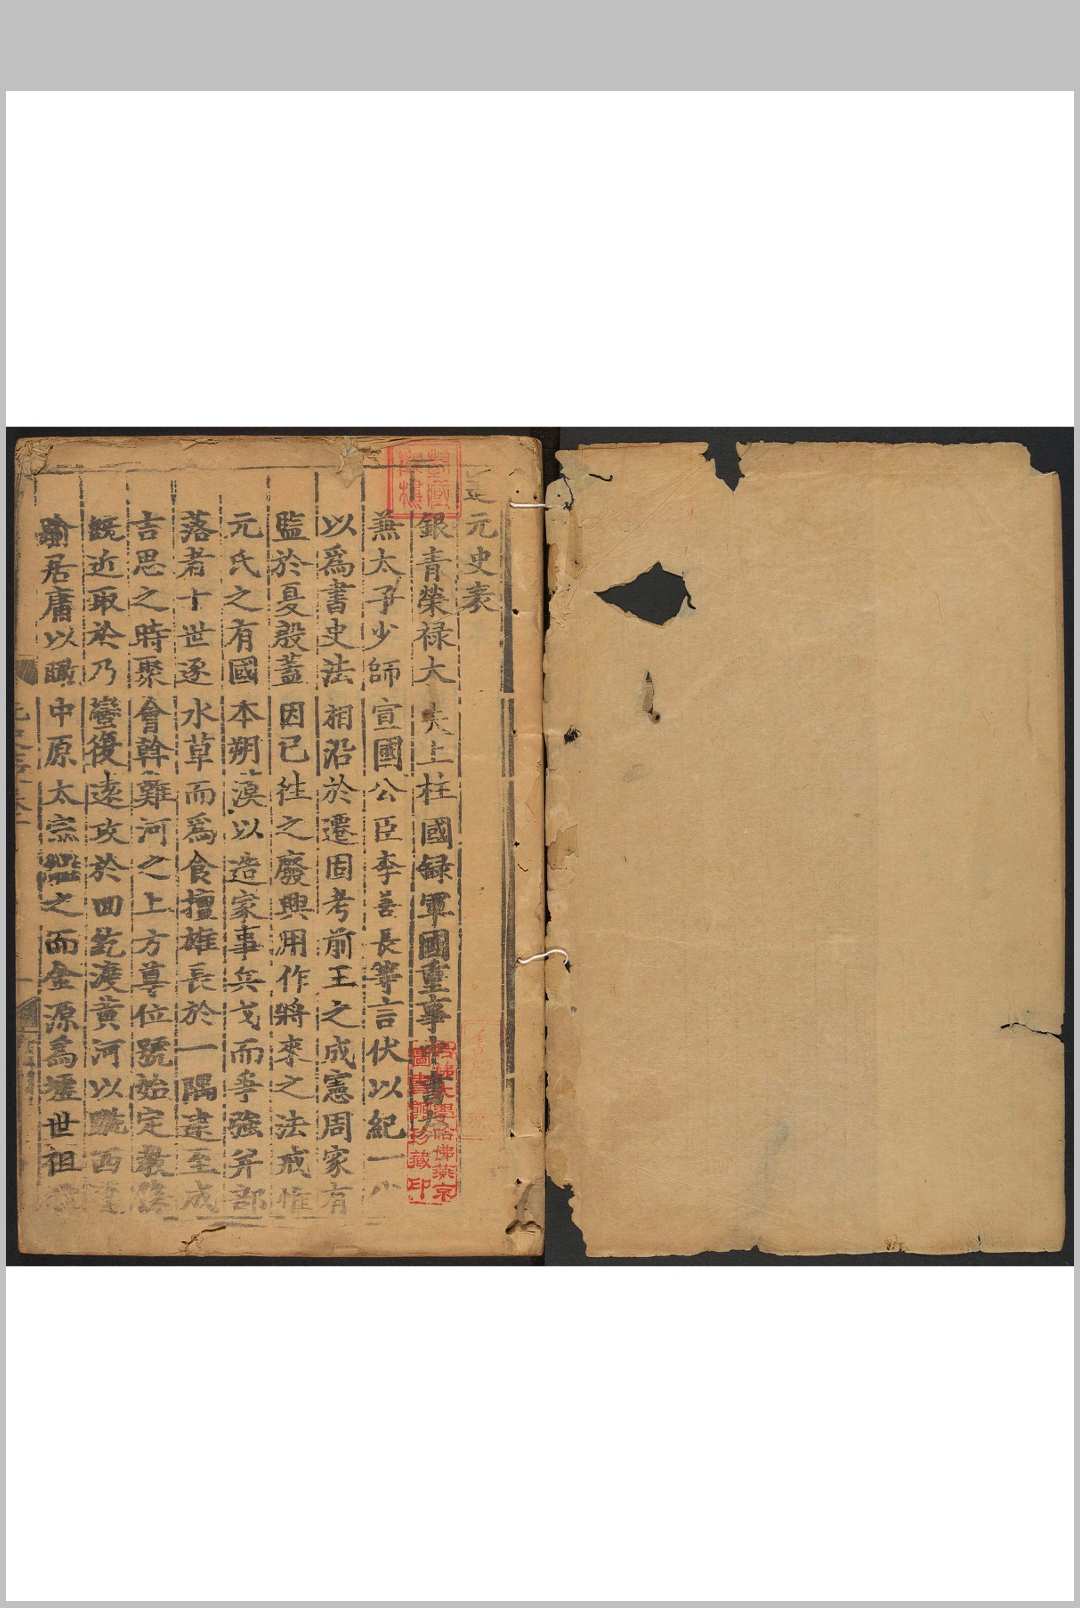 進元史表
銀青榮祿大夫上柱國録軍國重事中書
兼太子少師宣國公臣李善長等言伏以紀一代
以爲書史法相沿於遷固考前王之成憲周家有
監於夏殷蓋因已往之廢興用作將來之法戒惟
元氏之有國本朔漠以造家事兵戈而爭強并部
落者十世逐水草而爲食擅雄長於一隅逮至成
吉思之時聚會斡難河之上方尊位號始定教條
既近取於乃蠻復遠攻於回紇渡黃河以蹴西夏
踰居庸以瞰中原太宗繼之而金源爲墟世祖
哈佛大學哈佛燕京
圖書館珍藏印